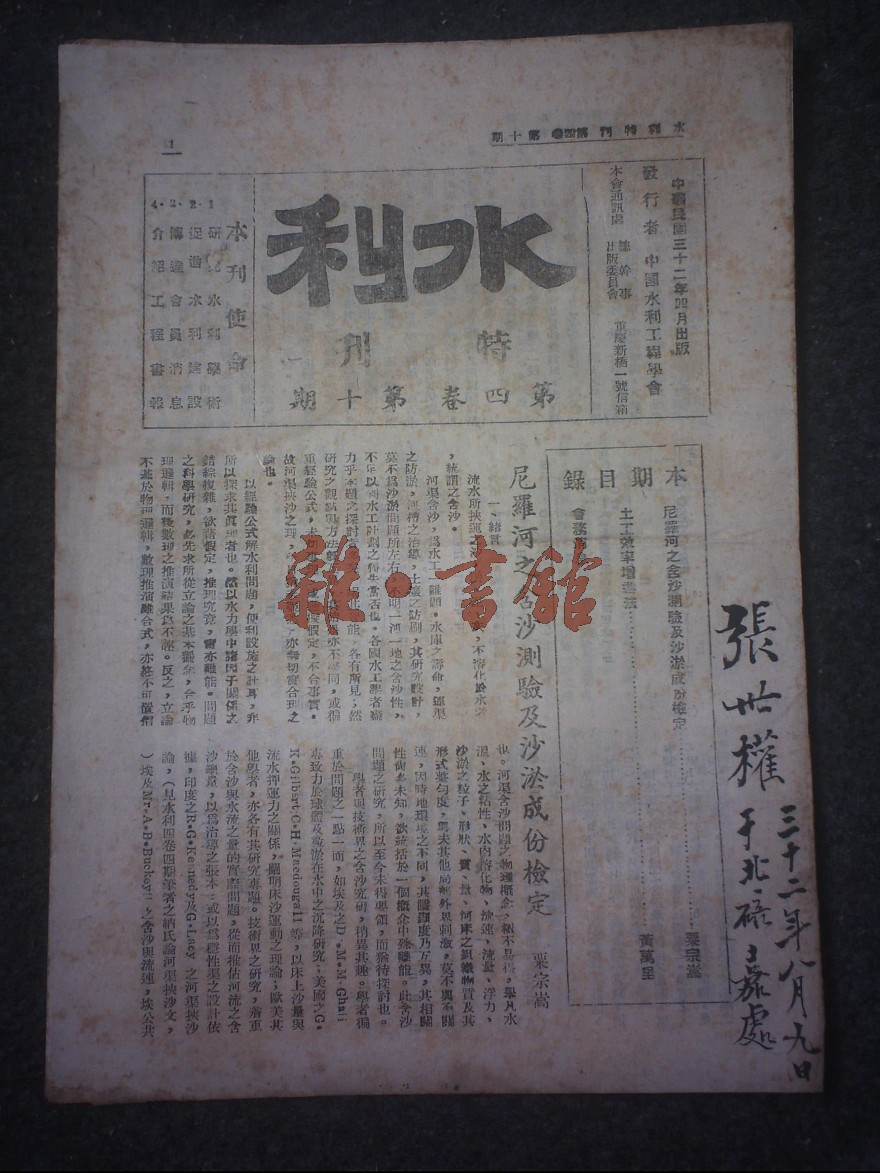 水利特刊第四卷第十期
1
中華民國三十二年四月出版
發行者 中國水利工程學會
本會通訊處 總幹事 出版委員會 重慶新橋一號信箱
水利
特刊
第四卷第十期
本刊使命
1. 研究水利學術
2. 促進水利建設
3. 傳達會員消息
4. 介紹工程書報
本期目錄
尼羅河之含沙測驗及沙淤成份檢定 栗宗嵩
土工效率增進法 黃萬里
會務
尼羅河之含沙測驗及沙淤成份檢定 栗宗嵩
一、緒言
流水所挾運之 不溶化於水
,統謂之含沙。
河渠含沙,爲水工一難題。水庫之壽命,運渠
之防淤,河槽之治導,土壤之防刷,其研究設計,
莫不爲沙淤問題所左右。不明一河一地之含沙性,
不足以判水工計劃之得失當否也。各國水工學者
力乎本題之探討 能,各有所見;然
研究之觀點與方法 亦不盡同,或偏
重經驗公式,未 假定,不合事實。
故河渠挾沙之理, 亦無切實合理之
論也。
以經驗公式解水利問題,便利設施之計耳,非
所以探求其眞理者也。然以水力學中諸因子關係之
錯綜複雜,欲藉假定,推理究竟,實亦難能。問題
之科學研究,必先求所從立論之基本觀念,合乎物
理邏輯,而後數理之推演結果爲不謬。反之,立論
不基於物理邏輯,數理推演雖合式,亦終不可置信
也。河渠含沙問題之物理概念,極不易得,舉凡水
溫、水之粘性、水內溶化物、流速、流量、浮力、
沙淤之粒子、形狀、質、量、河床之組織物質及其
形式勻度,與夫其他局部外界刺激,莫不與有關
連,因時地環境之不同,其關顧度乃互異,其相關
性尚多未知,欲統括於一個概念中殊難能。此含沙
問題之研究,所以至今未得要領,而猶待探討也。
學者與技術界之含沙究研,稍異其趣。學者偏
重於問題之一點一面,如埃及之D.M.M.Ghali
專致力於球體及沙淤在水中之沉降研究;美國之G.
K.Gilbert,C.H.Macdougall等,以床上沙量與
流水押運力之關係,闡明床沙運動之理論;歐美其
他學者,亦各有其研究專題。技術界之研究,着重
於含沙與水流之量的實際問題,從而推估河流之含
沙總量,以爲治導之張本;或以爲穩性渠之設計依
據,印度之R.G.Kennedy及G.Lacy之河渠挾沙
論,(見水利四卷四期筆者之納氏論河渠挾沙文,
)埃及Mr.A.B.Buckey之含沙與流速,埃公共
雜·書館
張世權
三十二年八月九日
于北碚
處